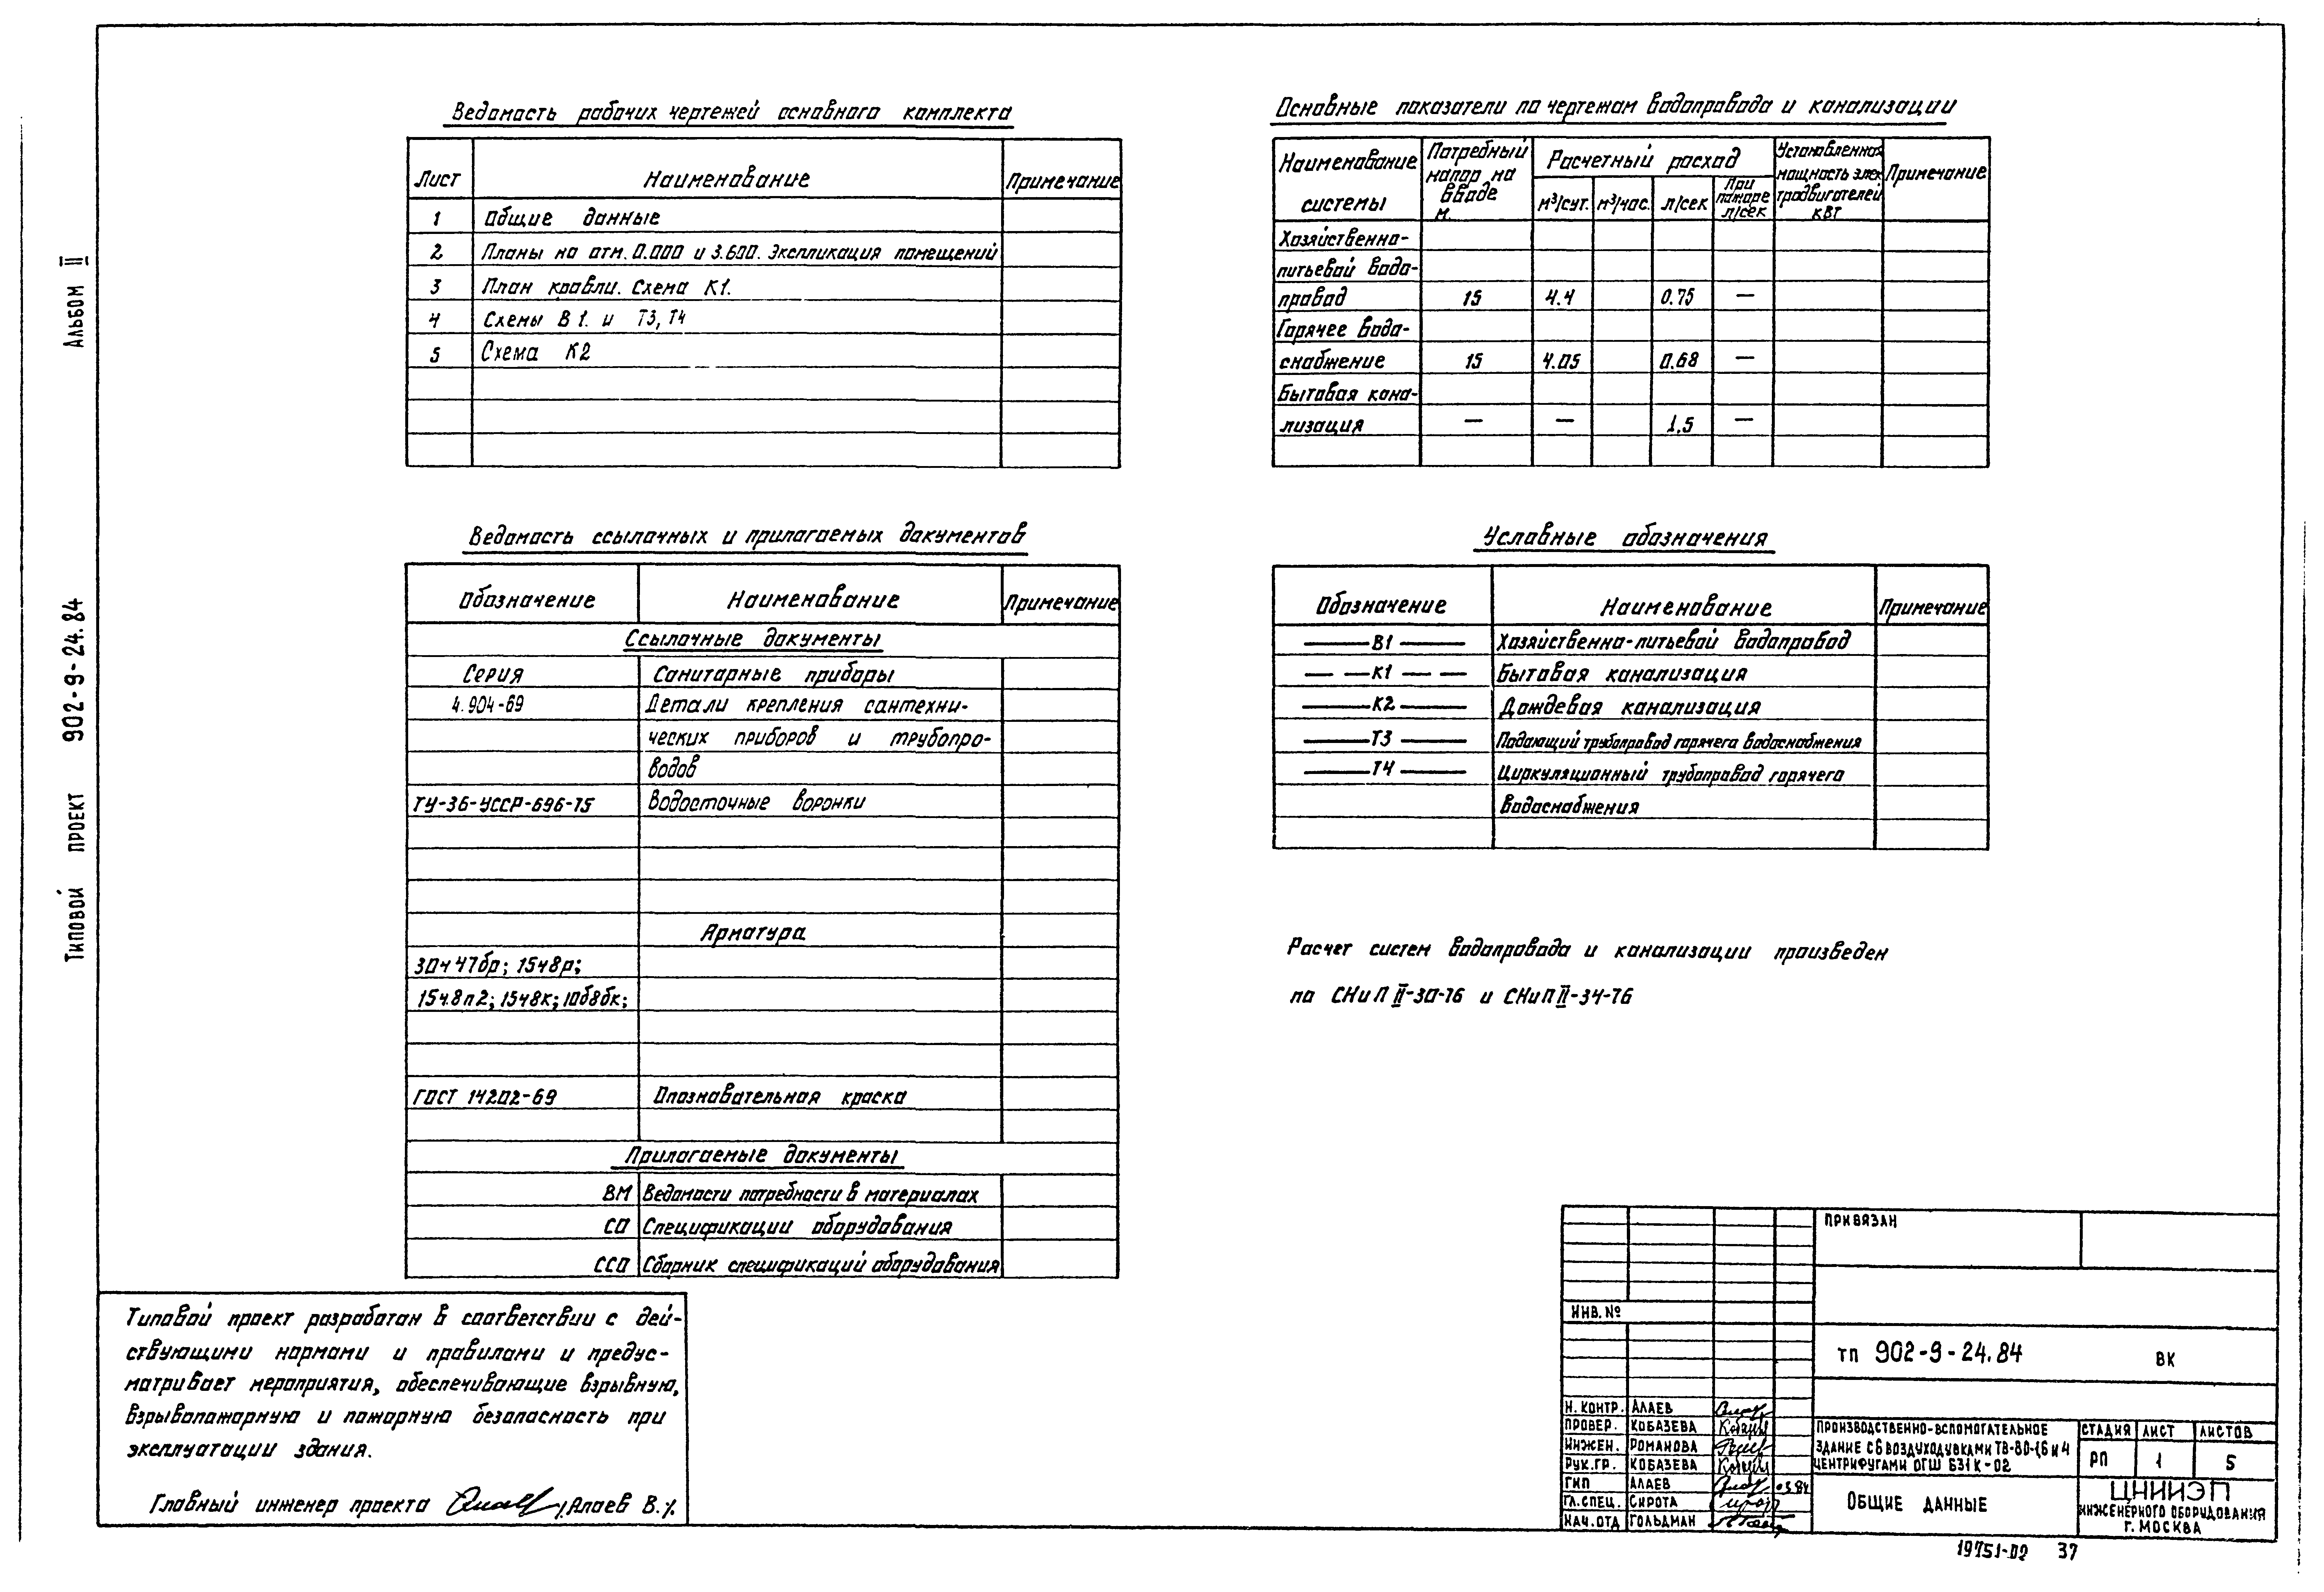 Альбом II
Типовой проект 902-9-24.84
Ведомость рабочих чертежей основного комплекта
Лист Наименование Примечание
1 Общие данные
2 Планы на отм. 0.000 и 3.600. Экспликация помещений
3 План кровли. Схема К1.
4 Схемы В1. и Т3, Т4
5 Схема К2
Основные показатели по чертежам водопровода и канализации
Наименование системы
Потребный напор на вводе м.
Расчетный расход
м³/сут. м³/час. л/сек При пожаре л/сек
Установленная мощность электродвигателей квт
Примечание
Хозяйственно-
питьевой водо-
провод 15 4.4 0.75 —
Горячее водо-
снабжение 15 4.05 0.68 —
Бытовая кана-
лизация — — 1.5 —
Ведомость ссылочных и прилагаемых документов
Обозначение Наименование Примечание
Ссылочные документы
Серия Санитарные приборы
4.904-69 Детали крепления сантехни-
ческих приборов и трубопро-
водов
ТУ-36-УССР-696-75 Водосточные воронки
Арматура
30ч47бр; 15ч8р;
15ч8п2; 15ч8к; 10б8бк;
ГОСТ 14202-69 Опознавательная краска
Прилагаемые документы
ВМ Ведомости потребности в материалах
СО Спецификации оборудования
ССО Сборник спецификаций оборудования
Условные обозначения
Обозначение Наименование Примечание
В1 Хозяйственно-питьевой водопровод
К1 Бытовая канализация
К2 Дождевая канализация
Т3 Подающий трубопровод горячего водоснабжения
Т4 Циркуляционный трубопровод горячего
водоснабжения
Расчет систем водопровода и канализации произведен
по СНиП II-30-76 и СНиП II-34-76
Типовой проект разработан в соответствии с дей-
ствующими нормами и правилами и предус-
матривает мероприятия, обеспечивающие взрывную,
взрывопожарную и пожарную безопасность при
эксплуатации здания.
Главный инженер проекта /Алаев В./.
Привязан
Инв. №
ТП 902-9-24.84 ВК
Н. контр. Алаев
Провер. Кобазева
Инжен. Романова
Рук. гр. Кобазева
ГИП Алаев 03.84
Гл. спец. Сирота
Нач. отд Гольдман
Производственно-вспомогательное
здание с 6 воздуходувками ТВ-80-1,6 и 4
центрифугами ОГШ 631К-02
Стадия Лист Листов
РП 1 5
Общие данные
ЦНИИЭП
инженерного оборудования
г. Москва
19751-02 37